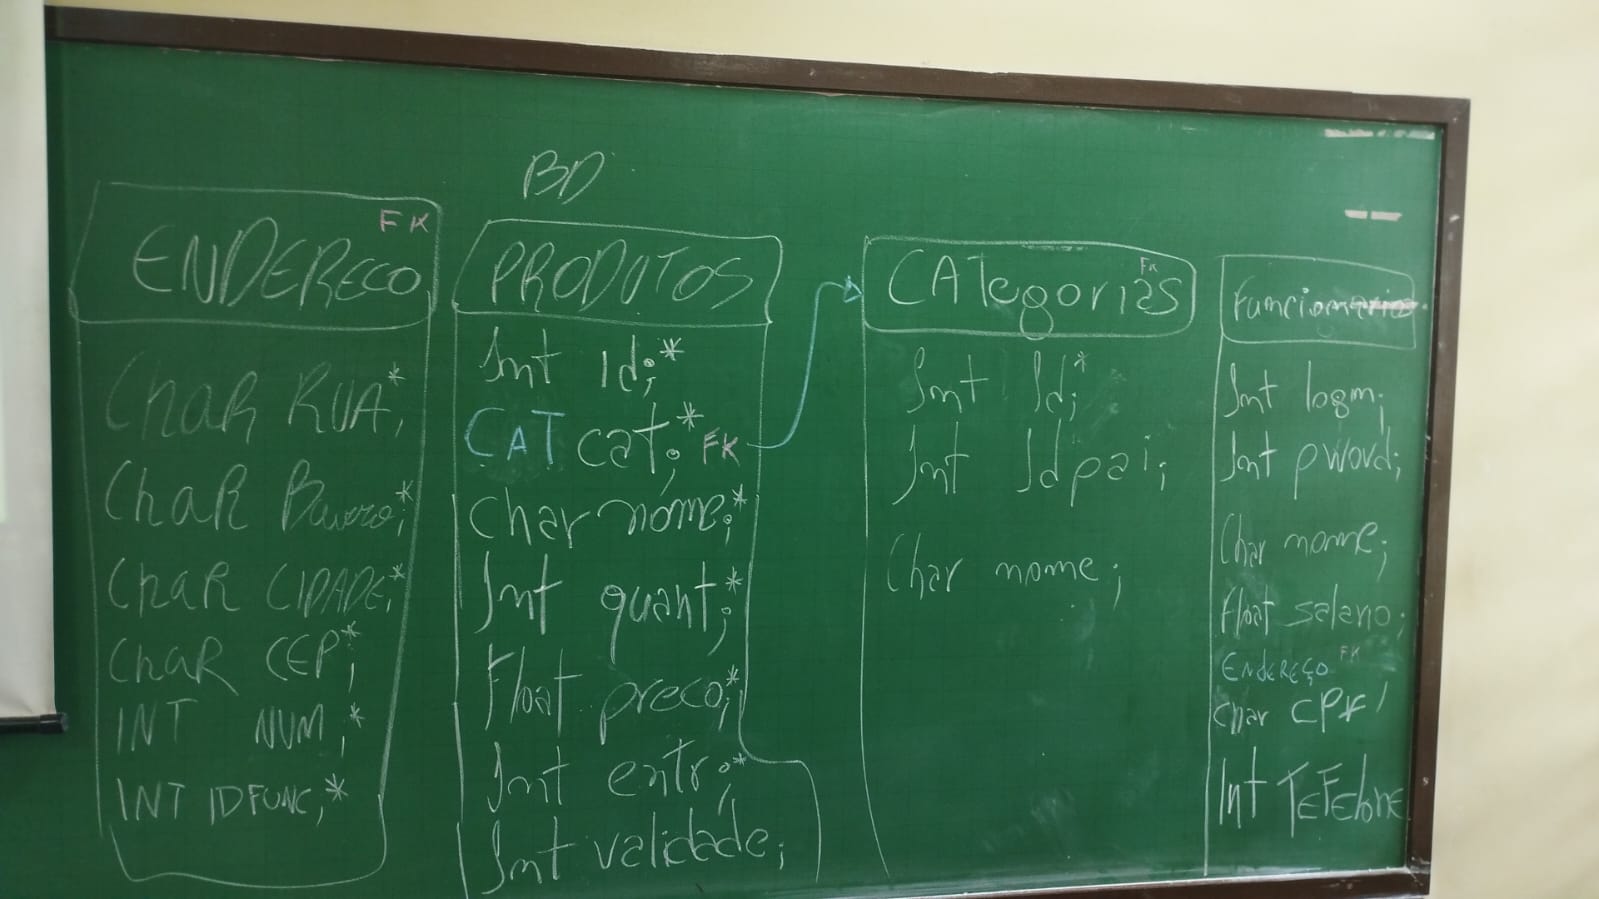 BD
ENDERECO FK
ChaR RUA,*
ChaR Bairro;*
ChaR CIDADE;*
ChaR CEP,*
INT NUM,*
INT IDFUNC,*
PRODUTOS
Int id;*
CAT cat;* FK
Char nome;*
Int quant;*
Float preco;*
Int entr;*
Int validade;
CAtegorias FK
Int Id;*
Int Idpai;
Char nome;
Funcionario
Int login;
Int pword;
Char nome;
Float salario;
ENDEREÇO FK
Char CPF
Int TEFEbne